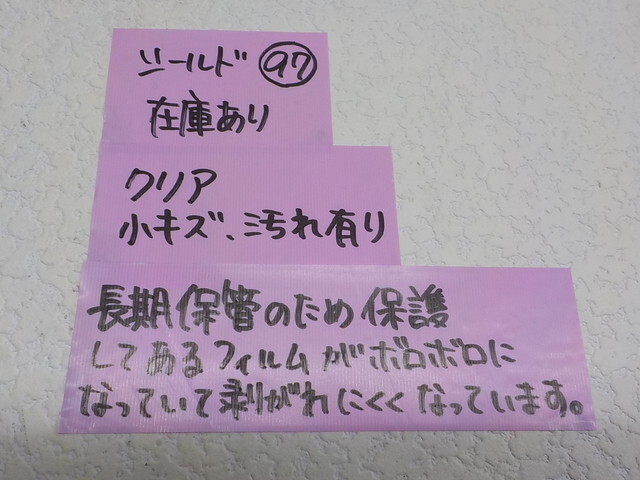 シールド 97
在庫あり
クリア
小キズ、汚れ有り
長期保管のため保護
してあるフィルムがボロボロに
なっていて剥がれにくくなっています。